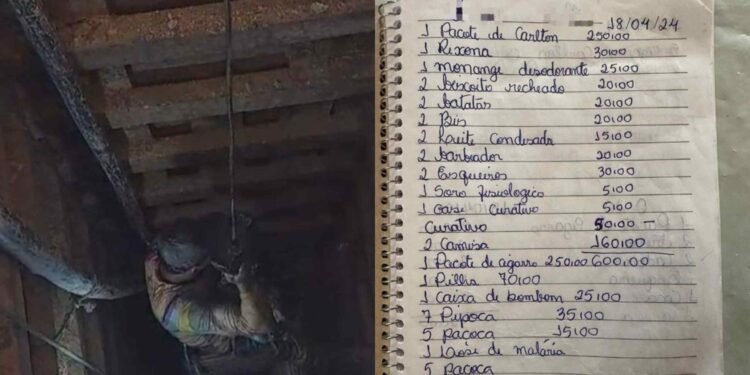 18/04/24
1 Pacote de Carlton 250,00
1 Rexona 30,00
1 monange desodorante 25,00
2 biscoito recheado 20,00
2 batatas 20,00
2 Bis 20,00
2 Leite Condesado 15,00
2 barbeador 20,00
2 Esqueiros 30,00
1 Soro fisiologico 5,00
1 Gase Curativo 5,00
Curativo 50,00
2 Camisa 160,00
1 Pacote de cigarro 250,00 600,00
1 Pilha 70,00
1 Caixa de bombom 25,00
7 Pipoca 35,00
5 pacoca 15,00
1 de malária
5 pacoca